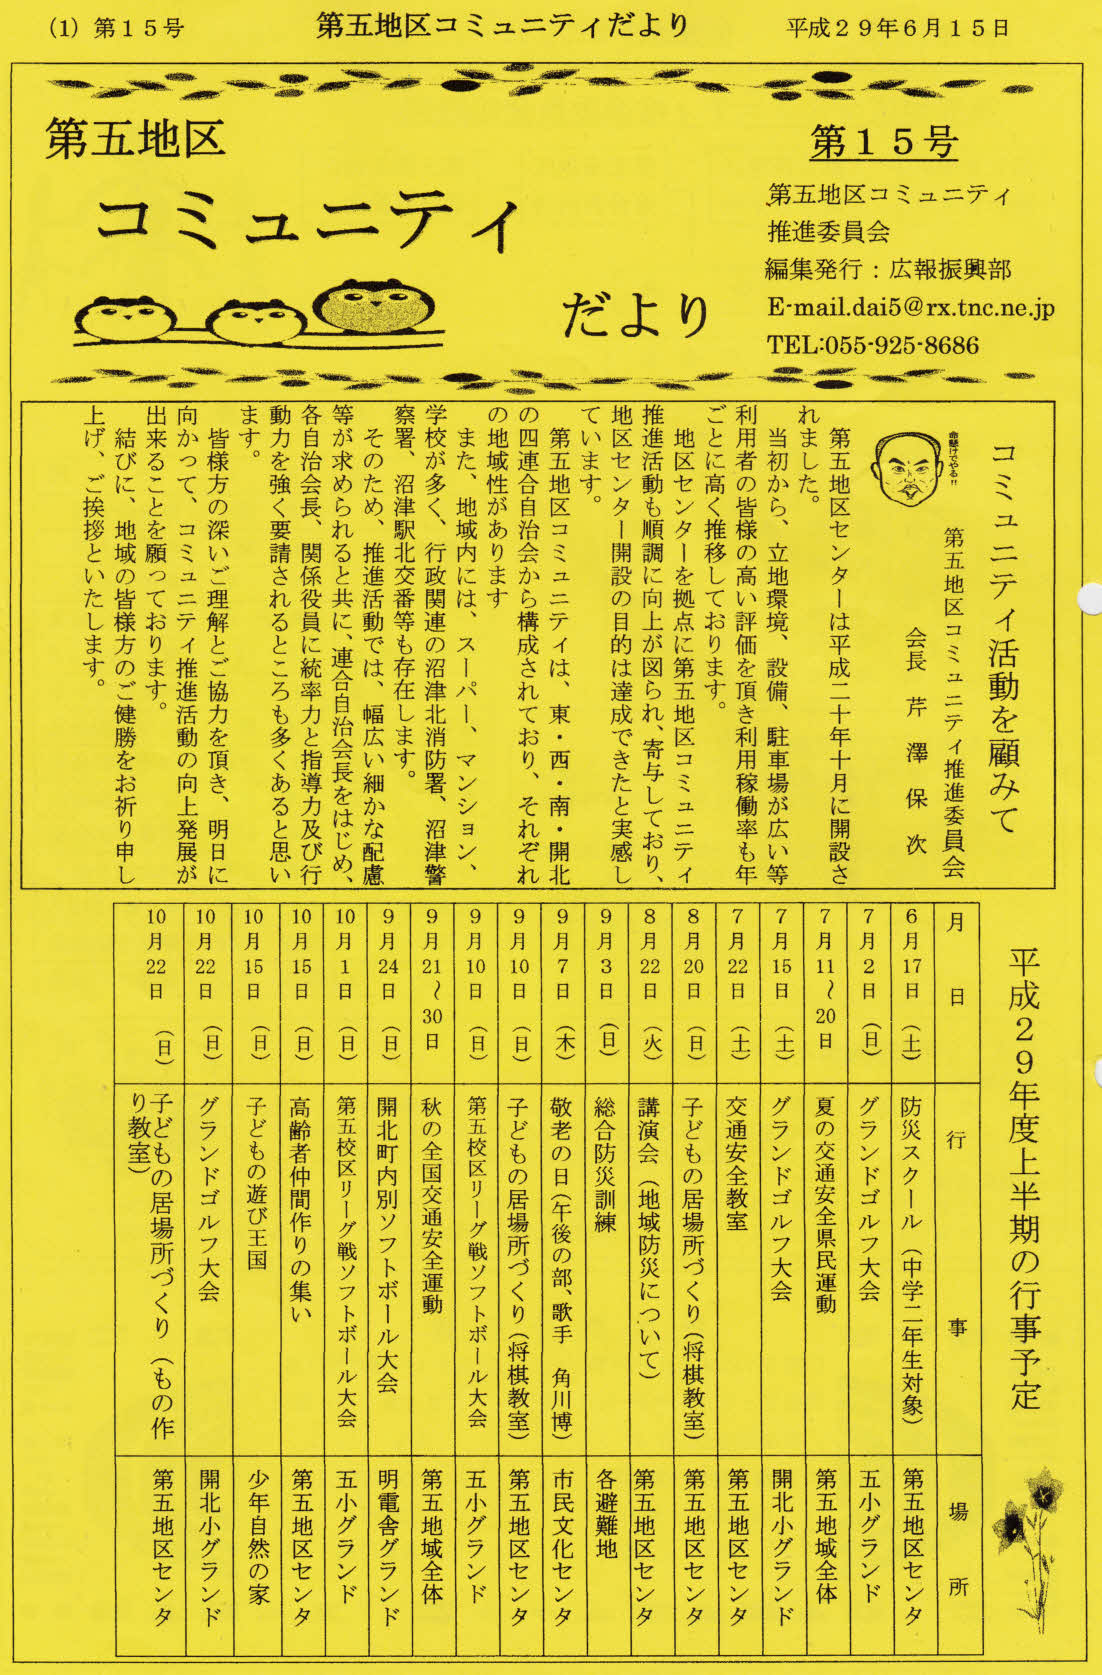 (1) 第１５号
第五地区コミュニティだより
平成２９年６月１５日
第五地区
コミュニティ
だより
第１５号
第五地区コミュニティ
推進委員会
編集発行：広報振興部
E-mail.dai5@rx.tnc.ne.jp
TEL:055-925-8686
コミュニティ活動を顧みて
第五地区コミュニティ推進委員会
会長　芹　澤　保　次
命懸けでやる!!
第五地区センターは平成二十年十月に開設さ
れました。
当初から、立地環境、設備、駐車場が広い等
利用者の皆様の高い評価を頂き利用稼働率も年
ごとに高く推移しております。
地区センターを拠点に第五地区コミュニティ
推進活動も順調に向上が図られ、寄与しており、
地区センター開設の目的は達成できたと実感し
ています。
第五地区コミュニティは、東・西・南・開北
の四連合自治会から構成されており、それぞれ
の地域性があります
また、地域内には、スーパー、マンション、
学校が多く、行政関連の沼津北消防署、沼津警
察署、沼津駅北交番等も存在します。
そのため、推進活動では、幅広い細かな配慮
等が求められると共に、連合自治会長をはじめ、
各自治会長、関係役員に統率力と指導力及び行
動力を強く要請されるところも多くあると思い
ます。
皆様方の深いご理解とご協力を頂き、明日に
向かって、コミュニティ推進活動の向上発展が
出来ることを願っております。
結びに、地域の皆様方のご健勝をお祈り申し
上げ、ご挨拶といたします。
平成２９年度上半期の行事予定
月　日　行　事　場　所
６月17日（土）　防災スクール（中学二年生対象）　第五地区センタ
７月２日（日）　グランドゴルフ大会　五小グランド
７月11～20日　夏の交通安全県民運動　第五地域全体
７月15日（土）　グランドゴルフ大会　開北小グランド
７月22日（土）　交通安全教室　第五地区センタ
８月20日（日）　子どもの居場所づくり（将棋教室）　第五地区センタ
８月22日（火）　講演会（地域防災について）　第五地区センタ
９月３日（日）　総合防災訓練　各避難地
９月７日（木）　敬老の日（午後の部、歌手　角川博）　市民文化センタ
９月10日（日）　子どもの居場所づくり（将棋教室）　第五地区センタ
９月10日（日）　第五校区リーグ戦ソフトボール大会　五小グランド
９月21～30日　秋の全国交通安全運動　第五地域全体
９月24日（日）　開北町内別ソフトボール大会　明電舎グランド
10月１日（日）　第五校区リーグ戦ソフトボール大会　五小グランド
10月15日（日）　高齢者仲間作りの集い　第五地区センタ
10月15日（日）　子どもの遊び王国　少年自然の家
10月22日（日）　グランドゴルフ大会　開北小グランド
10月22日（日）　子どもの居場所づくり（もの作
り教室）　第五地区センタ